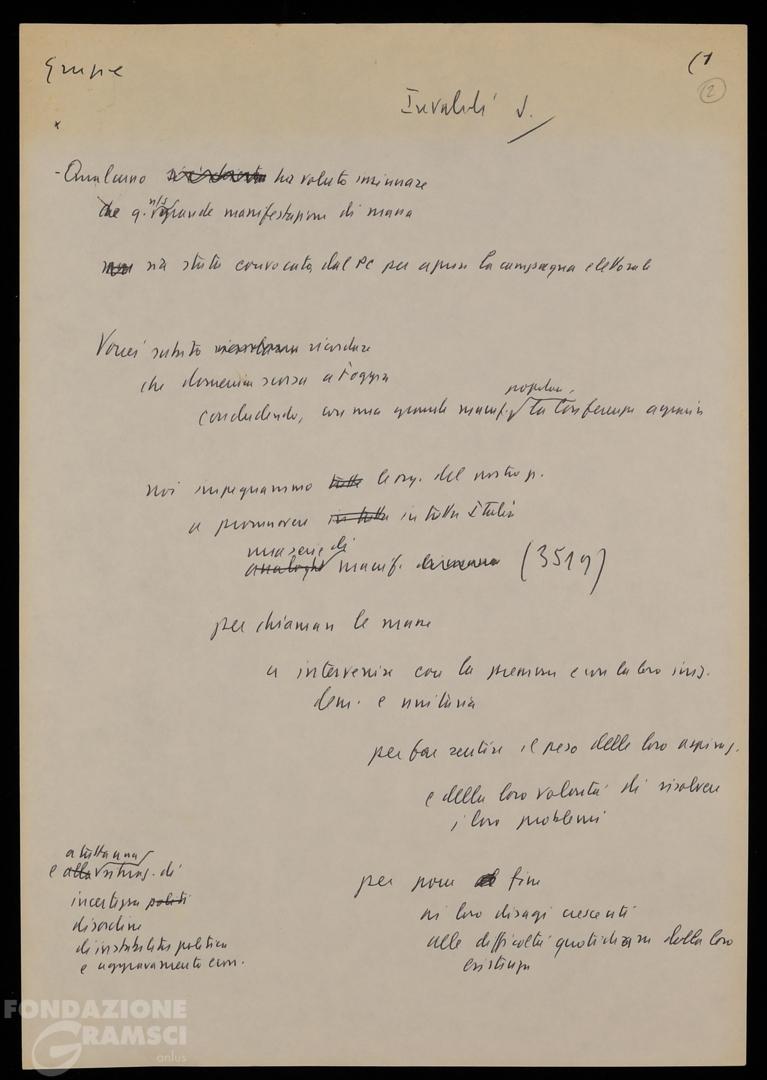 (1
2
Invalidi
- Qualcuno ha voluto insinuare
che q. n/s grande manifestazione di massa
non sia stata convocata dal PC per aprire la campagna elettorale
Vorrei subito ricordare
che domenica scorsa a Foggia
popolare,
concludendo, con una grande manif. la Conferenza agraria
noi impegnammo tutte le org. del nostro p.
a promuovere in tutta in tutta Italia
una serie di
analoghe manif. (3519)
per chiamare le masse
a intervenire con la pressione e con la loro iniz.
dem. e unitaria
per far sentire il peso delle loro aspiraz.
e della loro volontà di risolvere
i loro problemi
per porre fine
ai loro disagi crescenti
alle difficoltà quotidiane della loro
esistenza
a tutta una
e alla situaz. di
incertezza politi
disordine
di instabilità politica
e aggravamento econ.
FONDAZIONE
GRAMSCI
onlus